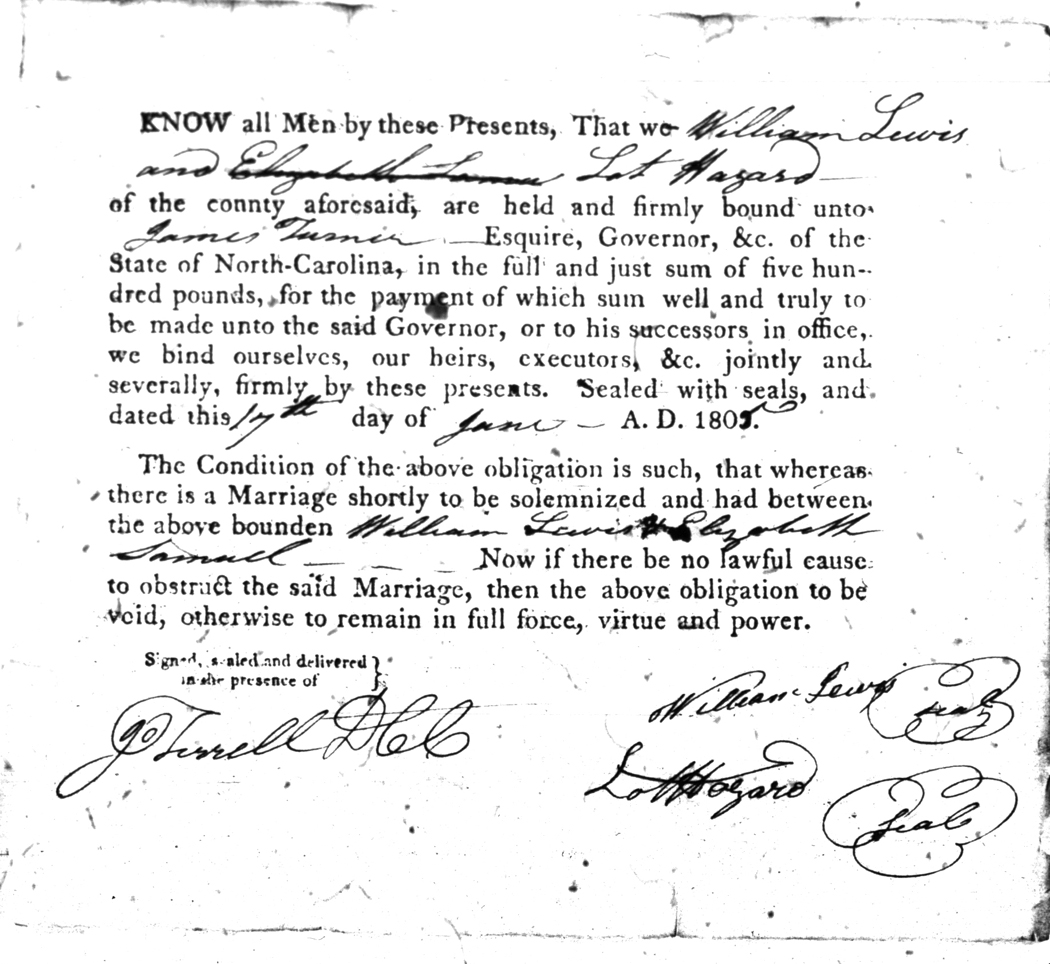 KNOW all Men by these Presents, That we William Lewis
and Elizabeth Lot Hazard
of the county aforesaid, are held and firmly bound unto
James Turner Esquire, Governor, &c. of the
State of North-Carolina, in the full and just sum of five hun-
dred pounds, for the payment of which sum well and truly to
be made unto the said Governor, or to his successors in office,
we bind ourselves, our heirs, executors, &c. jointly and
severally, firmly by these presents. Sealed with seals, and
dated this 17th day of June A. D. 1805.
The Condition of the above obligation is such, that whereas
there is a Marriage shortly to be solemnized and had between
the above bounden William Lewis & Elizabeth
Samuel Now if there be no lawful cause
to obstruct the said Marriage, then the above obligation to be
void, otherwise to remain in full force, virtue and power.
Signed, sealed and delivered
in the presence of
Jo Terrell D C C
William Lewis seal
Lot Hazard seal